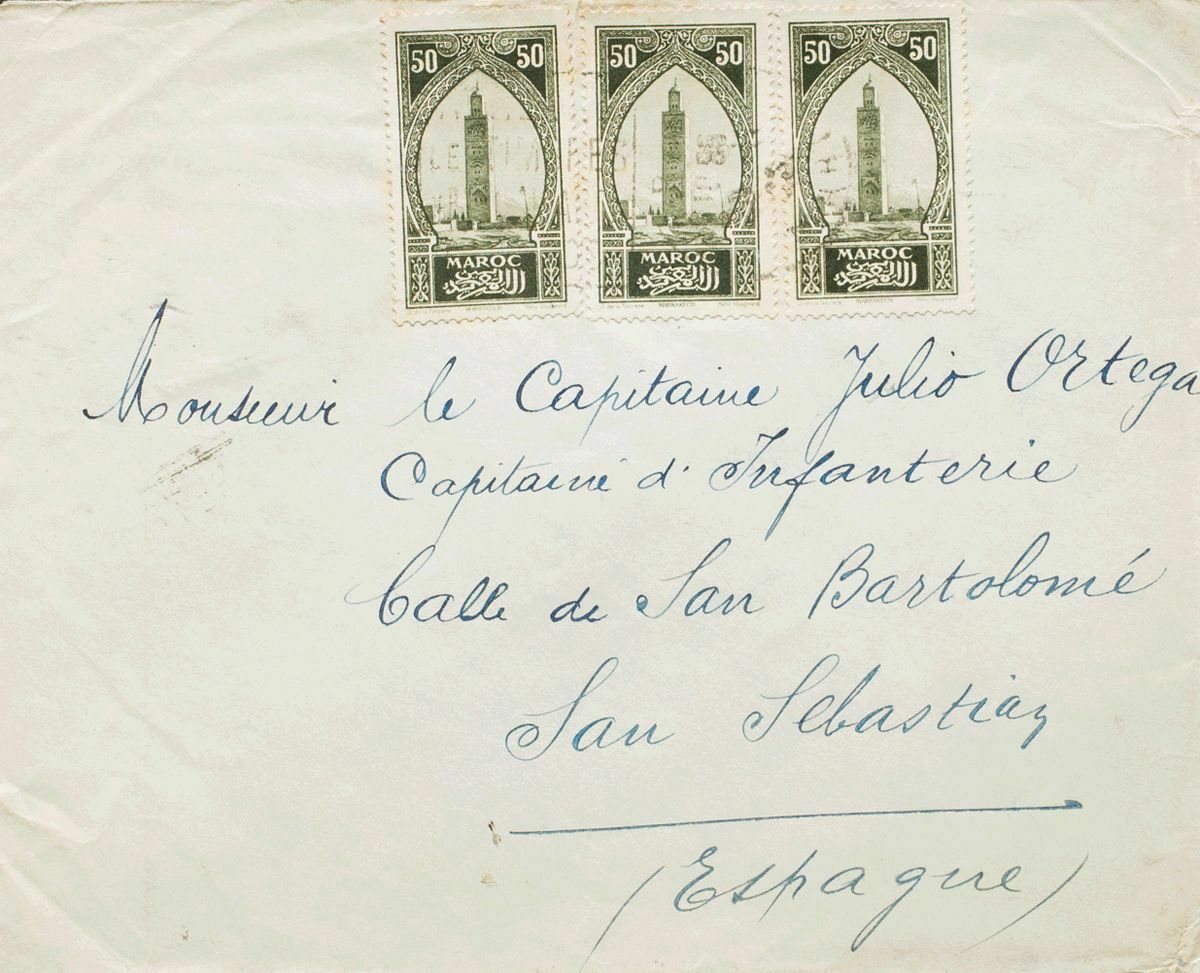 50 50 50 50 50 50
MAROC MAROC MAROC
MARRAKECH MARRAKECH MARRAKECH
Monsieur le Capitaine Julio Ortega
Capitaine d'Infanterie
Calle de San Bartolomé
San Sebastian
(Espagne)